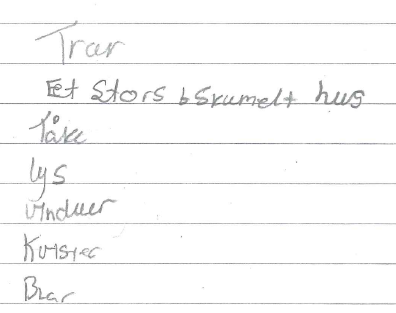 Trær
Et Stors skumelt hus
Tåke
lys
vinduer
Kvister
Blar